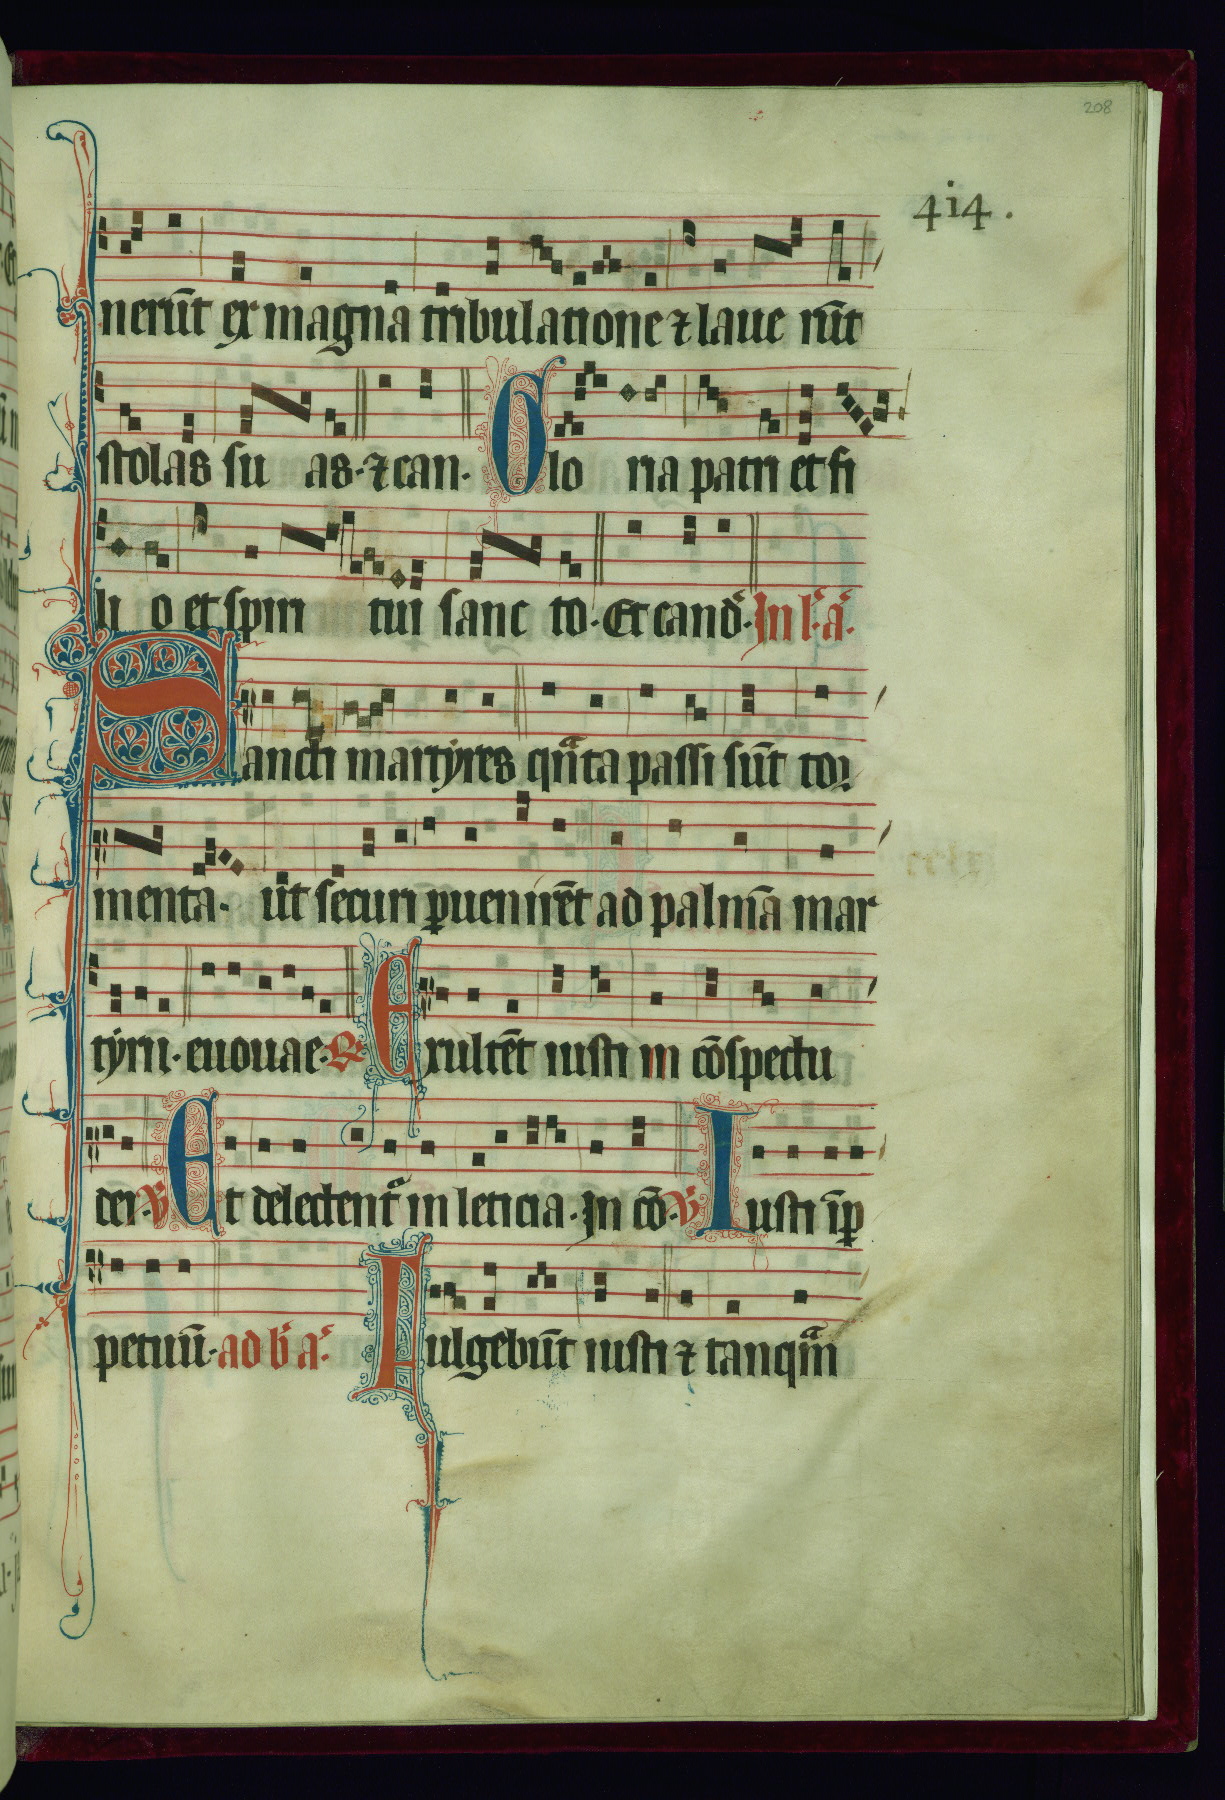 208
414.
nerūt ex magna tribulatione ⁊ laue rūt
stolas su as· ⁊ can· Glo ria patri et fi
li o et spiri tui sanc to· Et cand̄· In l· a·
Sancti martyres qͣnta passi sūt tor
menta· ut securi ꝑuenirēt ad palmā mar
tyrii· euouae· ℟ Exultēt iusti in cōspectu
dei· ℣ Et delectentᷓ in leticia· In cō· ℣ Iusti īꝑ
petuū· ad b̄ a· Fulgebūt iusti ⁊ tanqͣm